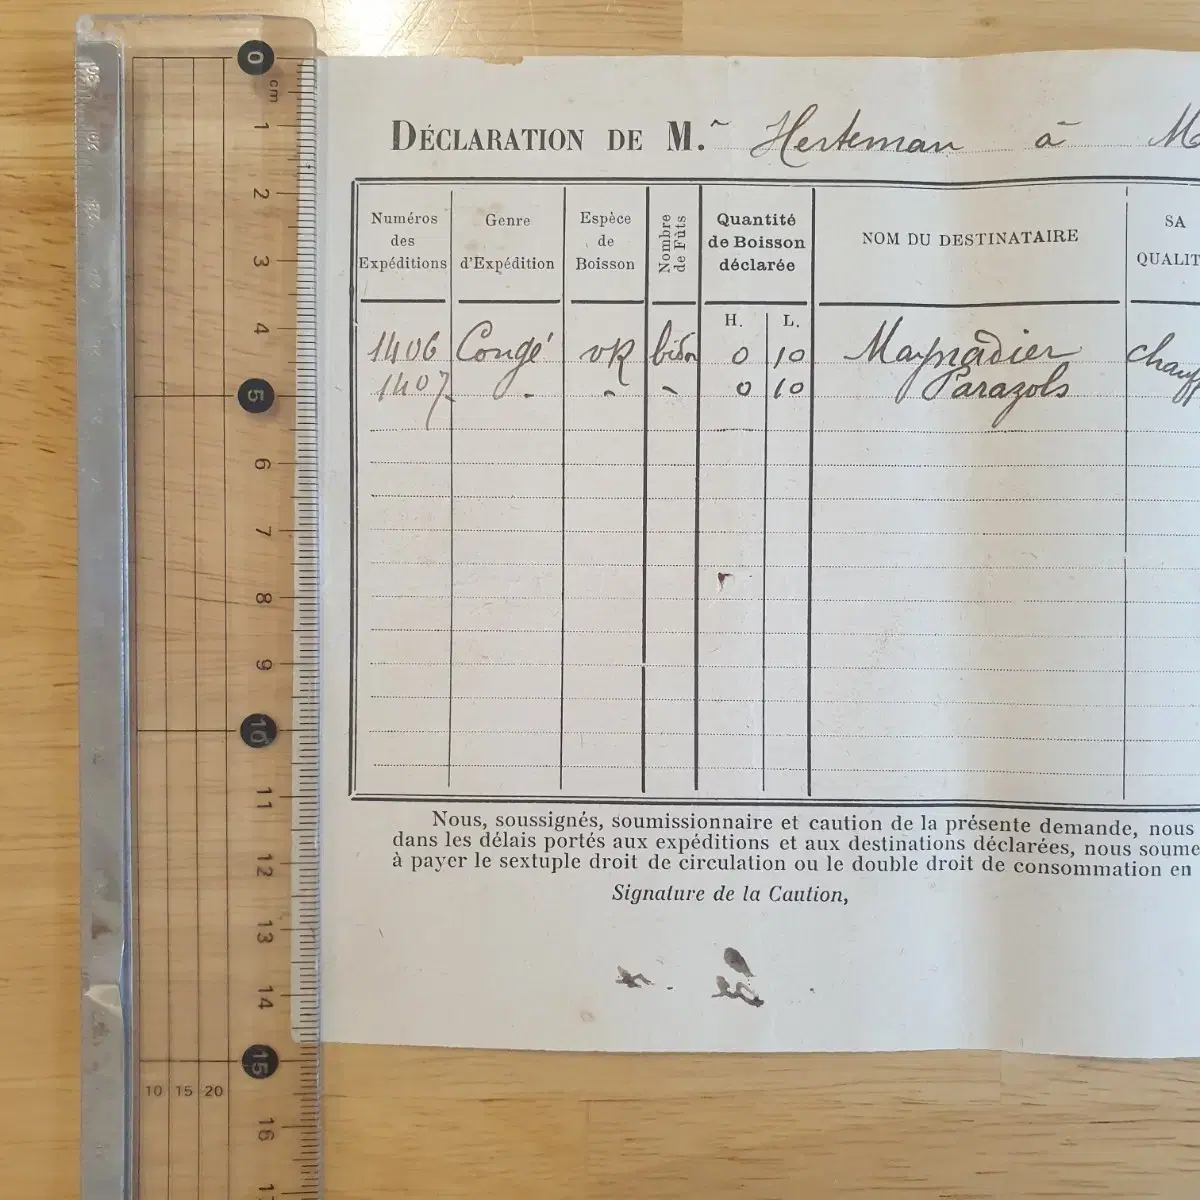 DÉCLARATION DE M.r Herteman à M
Numéros des Expéditions
Genre d'Expédition
Espèce de Boisson
Nombre de Fûts
Quantité de Boisson déclarée
NOM DU DESTINATAIRE
SA QUALIT
H. L.
1406 Congé vR bidon 0 10 Maynadier chauff
1407 - - - 0 10 Parazols
Nous, soussignés, soumissionnaire et caution de la présente demande, nous
dans les délais portés aux expéditions et aux destinations déclarées, nous soume
à payer le sextuple droit de circulation ou le double droit de consommation en
Signature de la Caution,
0
cm
1
2
3
4
5
6
7
8
9
10
11
12
13
14
15
10 15 20
16